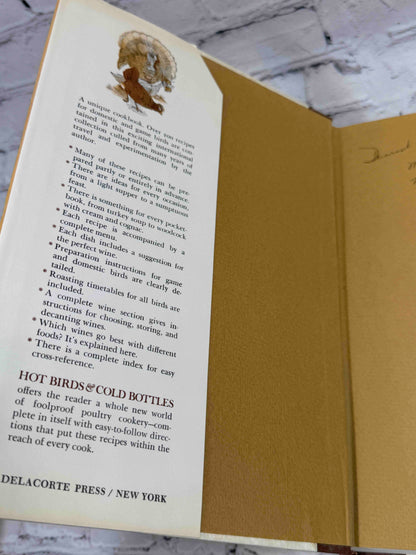 A unique cookbook. Over 100 recipes
for domestic and game birds are con-
tained in this exciting international
collection culled from many years of
travel and experimentation by the
author.
• Many of these recipes can be pre-
pared partly or entirely in advance.
• There are ideas for every occasion,
from a light supper to a sumptuous
feast.
• There is something for every pocket-
book, from turkey soup to woodcock
with cream and cognac.
• Each recipe is accompanied by a
complete menu.
• Each dish includes a suggestion for
the perfect wine.
• Preparation instructions for game
and domestic birds are clearly de-
tailed.
• Roasting timetables for all birds are
included.
• A complete wine section gives in-
structions for choosing, storing, and
decanting wines.
• Which wines go best with different
foods? It's explained here.
• There is a complete index for easy
cross-reference.
HOT BIRDS & COLD BOTTLES
offers the reader a whole new world
of foolproof poultry cookery—com-
plete in itself with easy-to-follow direc-
tions that put these recipes within the
reach of every cook.
DELACORTE PRESS / NEW YORK